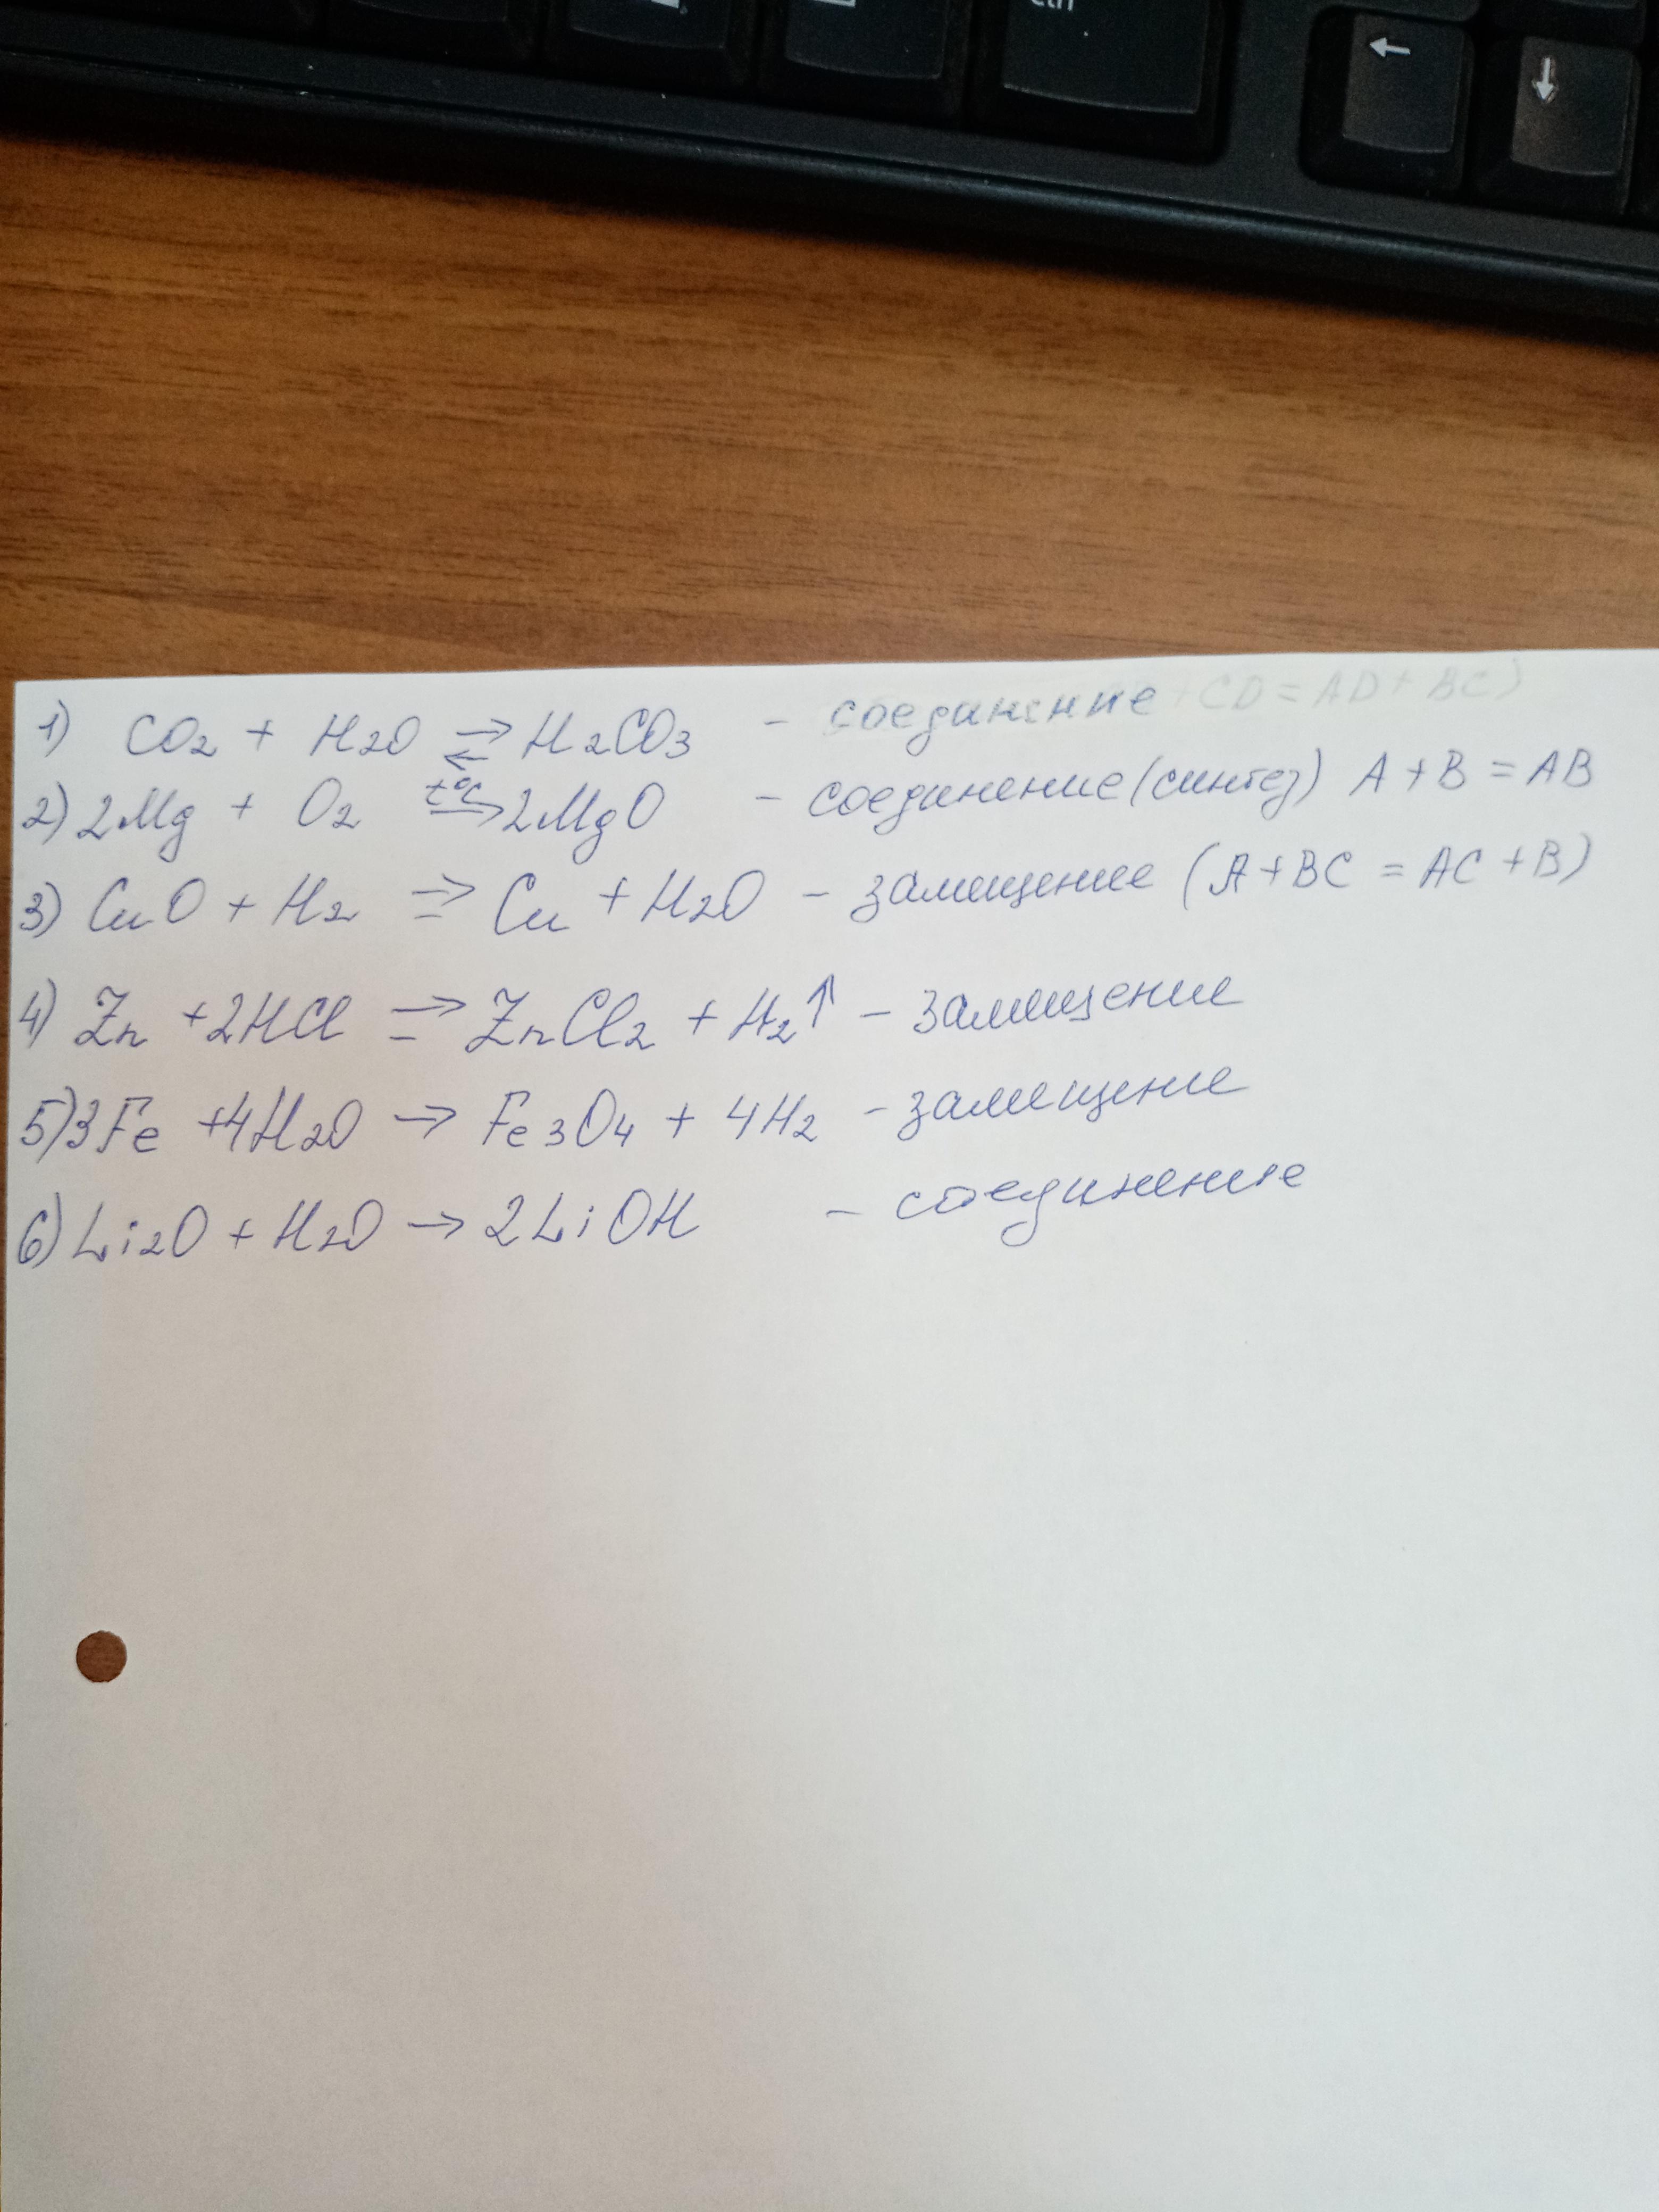 Ctrl
← ↓
1) CO2 + H2O ⇄ H2CO3 - соединение + CD = AD + BC)
2) 2Mg + O2 t°C → 2MgO - соединение (синтез) A + B = AB
3) CuO + H2 → Cu + H2O - замещение (A + BC = AC + B)
4) Zn + 2HCl → ZnCl2 + H2↑ - замещение
5) 3Fe + 4H2O → Fe3O4 + 4H2 - замещение
6) Li2O + H2O → 2LiOH - соединение